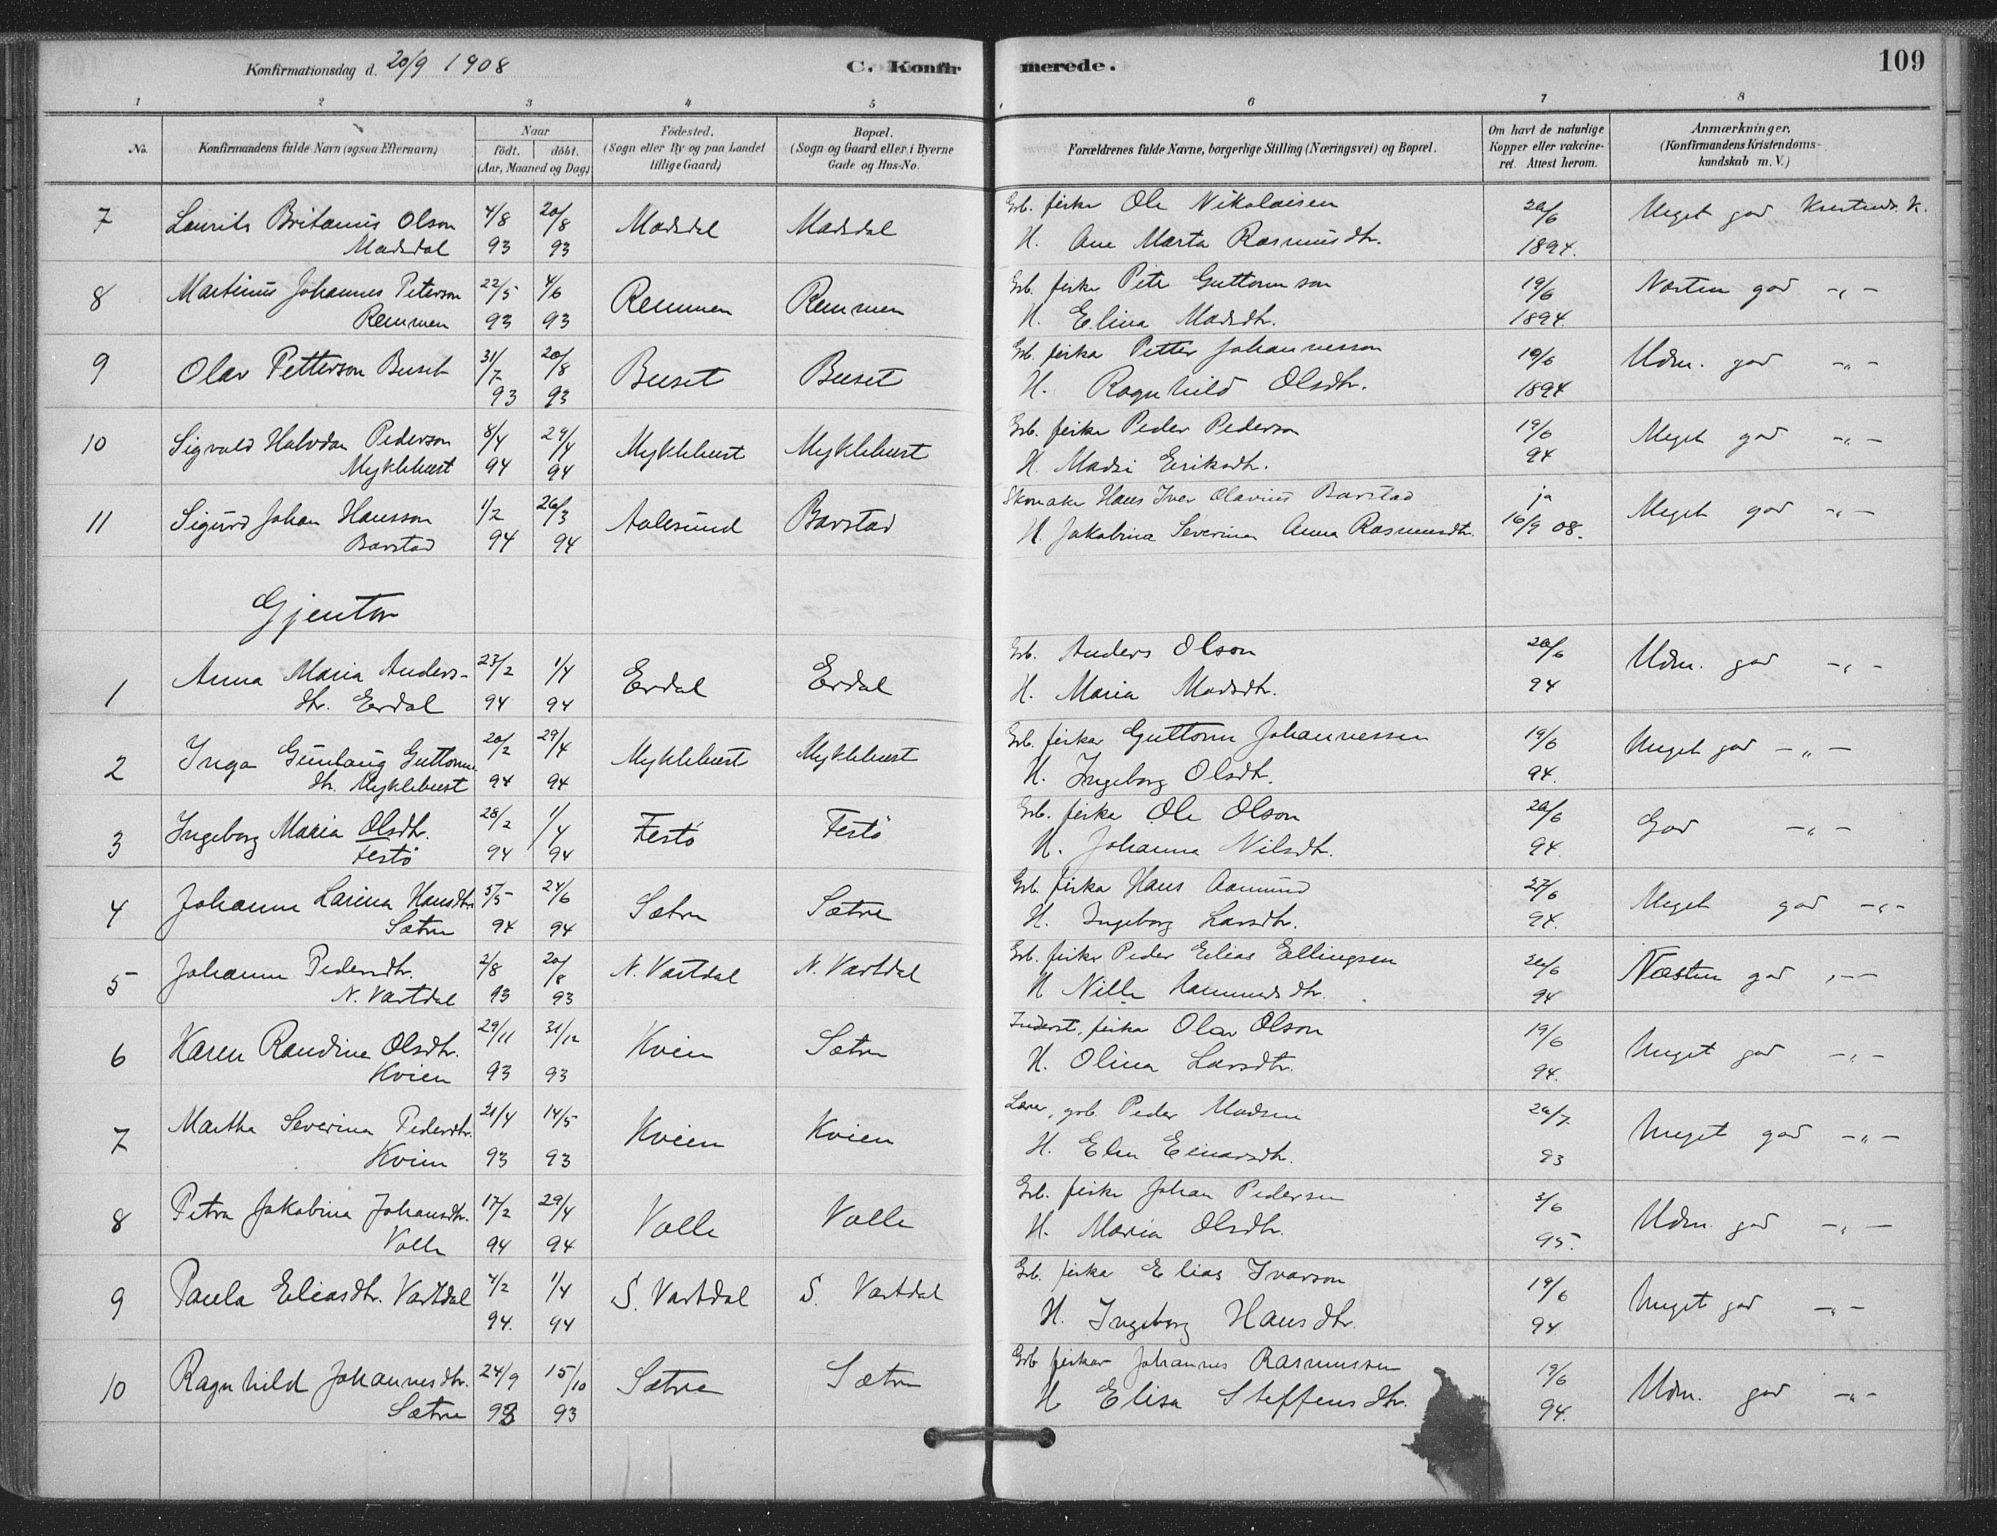 Konfirmationsdag d. 20/9 1908
C. Konfirmerede.
109
1 2 3 4 5 6 7 8
No.
Konfirmandens fulde Navn (ogsaa Efternavn)
Naar
födt. döbt.
(Aar, Maaned og Dag.)
Födested.
(Sogn eller By og paa Landet
tillige Gaard)
Bopæl.
(Sogn og Gaard eller i Byerne
Gade og Hus-No.
Forældrenes fulde Navne, borgerlige Stilling (Næringsvei) og Bopæl.
Om havt de naturlige
Kopper eller vakcine-
ret. Attest herom.
Anmærkninger.
(Konfirmandens Kristendoms-
kundskab m. V.)
7 Laurits Britanus Olson 4/8 20/8 Madsdal Madsdal Grb. fisker Ole Nikolaisen 20/6 Meget god Kristends. K.
Madsdal 93 93 H. Ane Marta Rasmusdtr. 1894.
8 Martinus Johannes Peterson 22/5 4/6 Remmen Remmen Grb. fisker Peter Guttormson 19/6 Næsten god -„-
Remmen 93 93 H. Elina Madsdtr. 1894.
9 Olav Petterson Buset 31/7 20/8 Buset Buset Grb. fisker Petter Johannesson 19/6 Udm. god -„-
93 93 H. Ragnhild Olsdtr. 1894
10 Sigvald Halvdan Pederson 8/4 29/4 Myklebust Myklebust Grb. fisker Peder Pederson 19/6 Meget god -„-
Myklebust 94 94 H. Madsi Eriksdtr. 94
11 Sigurd Johan Hansson 1/2 26/3 Aalesund Barstad Skomaker Hans Iver Olavius Barstad ja Meget god -„-
Barstad 94 94 H. Jakobina Severina Anna Rasmusdtr. 16/9 08.
Gjentor
1 Anna Maria Anders- 23/2 1/4 Erdal Erdal Grb. Anders Olson 20/6 Udm. god -„-
dtr. Erdal 94 94 H. Maria Madsdtr. 94
2 Inga Gunlaug Guttorms 20/2 29/4 Myklebust Myklebust Grb. fisker Guttorm Johannessen 19/6 Meget god -„-
dtr. Myklebust 94 94 H. Ingeborg Olsdtr. 94.
3 Ingeborg Maria Olsdtr. 28/2 1/4 Festö Festö Grb. fisker Ole Olson 20/6 God -„-
Festö 94 94 H. Johanna Nilsdtr. 94.
4 Johanne Larina Hansdtr. 5/5 24/6 Sætre Sætre Grb. fisker Hans Aamund 27/6 Meget god -„-
Sætre 94 94 H. Ingeborg Larsdtr. 94.
5 Johanne Pedersdtr. 2/8 20/8 N. Vartdal N. Vartdal Grb. fisker Peder Elias Ellingsen 20/6 Næsten god -„-
N. Vartdal 93 93 H Nille dtr. 94
6 Karen Randine Olsdtr. 29/11 31/12 Kvien Sætre Inderst, fisker Olav Olson 19/6 Meget god -„-
Kvien 93 93 H. Olina Larsdtr. 94.
7 Martha Severina Pedersdtr. 21/4 14/5 Kvien Kvien Lærer, grb. Peder Madsen 20/7 Meget god -„-
Kvien 93 93 H. Elen Einarsdtr. 93
8 Petra Jakobina Johansdtr. 17/2 29/4 Volle Volle Grb. fisker Johan Pedersen 3/6 Udm. god -„-
Volle 94 94 H. Maria Olsdtr. 95.
9 Paula Eliasdtr. Vartdal 4/2 1/4 S. Vartdal S. Vartdal Grb. fisker Elias Ivarson 19/6 Meget god -„-
94. 94 H. Ingeborg Hansdtr. 94
10 Ragnhild Johannesdtr. 24/9 15/10 Sætre Sætre Grb fisker Johannes Rasmussen 19/6 Udm. god -„-
Sætre 93 93 H Elisa Steffensdtr. 94.